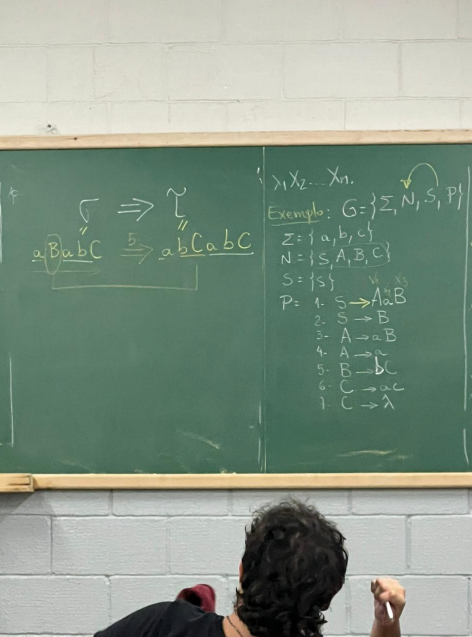 σ ⇒ τ
aBabC 5⇒ abCabC
X₂ ... Xn.
Exemplo: G={Σ, N, S, P}
Σ={a, b, c}
N={S, A, B, C}
S={S}
P= 1- S → AaB
2- S → B
3- A → aB
4- A → a
5- B → bC
6- C → ac
7- C → λ